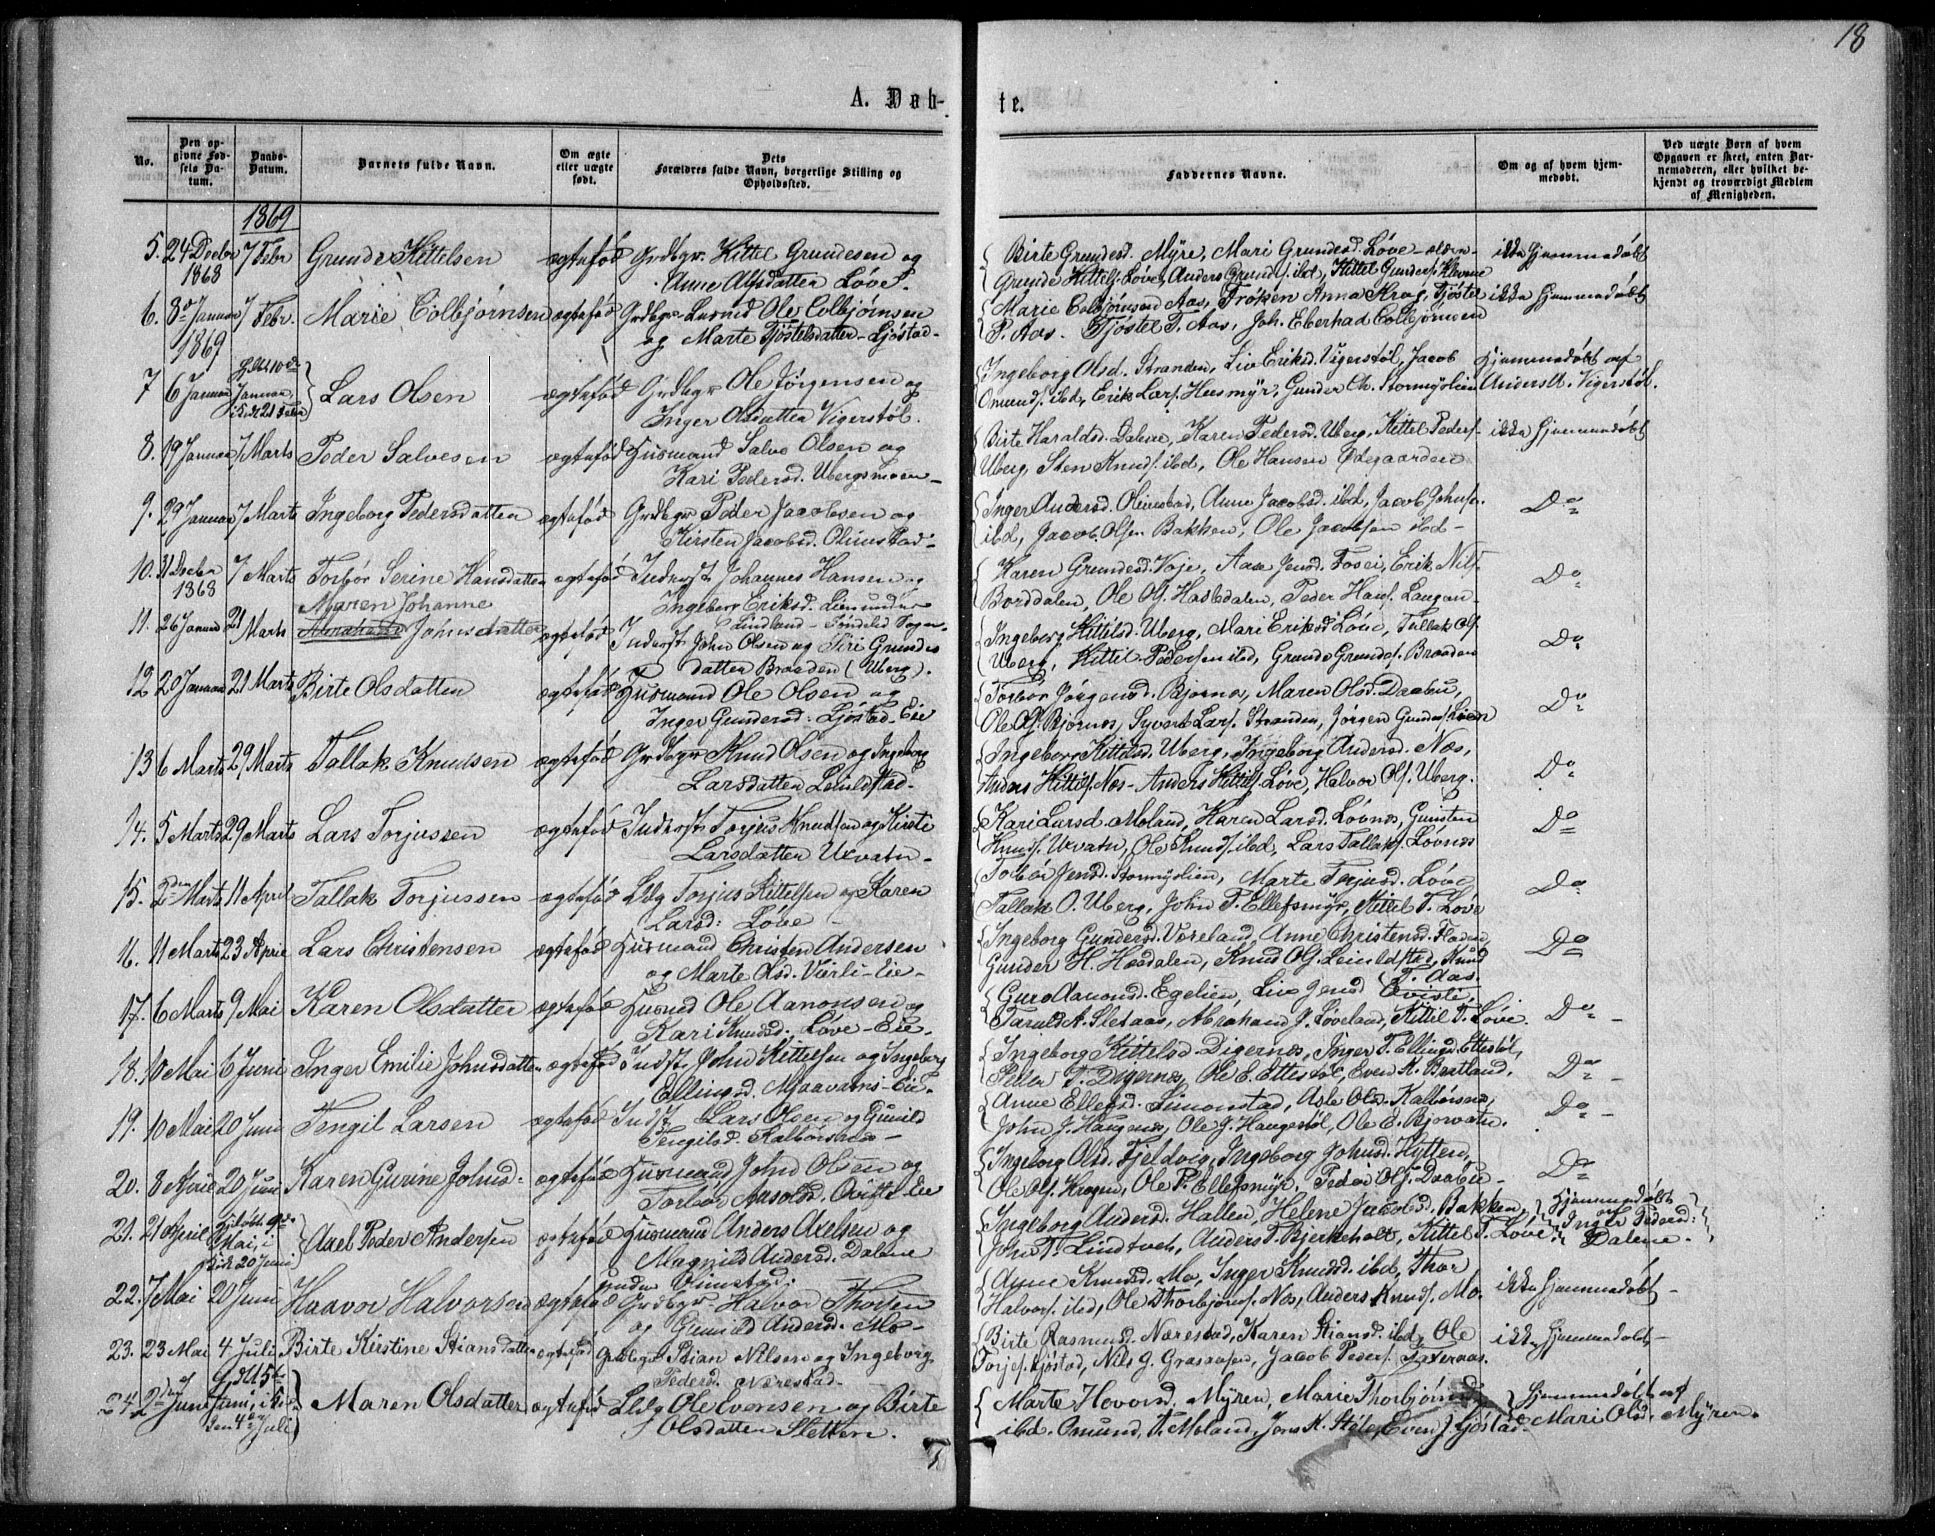 18
A. Døb-
te.
No.
Den opgivne Fødsels Datum.
Daabs-Datum.
Barnets fulde Navn.
Om ægte eller uægte født.
Dets Forældres fulde Navn, borgerlige Stilling og Opholdssted.
Faddernes Navne.
Om og af hvem hjemmedøbt.
Ved uægte Børn af hvem Opgaven er skeet, enten Barnemoderen, eller hvilket bekjendt og troværdigt Medlem af Menigheden.
1869
5. 24 Decbr 1868 7 Febr Grunde Kittelsen ægtefød Grdbgr. Kittel Grundesen og
Anne Alfsdatter Løve.
Birte Grundesd. Myre, Mari Grundesd. Løve ikke hjemmedøbt
Grunde Kittelf. Løve, Anders Grundf. ibd, Kittel Gundersf.
6. 3die Januar 1869 7 Febr. Marie Colbjørnsen ægtefød Grdbgr. Ole Colbjørnsen
og Marte Tjøstelsdatter Ljøstad
Marie Colbjørnsen Aas, Frøken Anna Krag, Tjøstel ikke hjemmedøbt
P. Aas. Tjøstel T. Aas, Joh. Eberhad Colbjørnsen
7 6 Januar Januar, i K. 21 Febr Lars Olsen ægtefød Grdbgr Ole Jørgensen og
Inger Olsdatter Vigerstøl.
Ingeborg Olsd. Stranden, Liv Eriksd. Vigerstøl, Jacob Hjemmedøbt af
Omundf. ibd, Erik Larsf. Husmyr, Gunder Ch. Stormyrlien Anders U. Vigerstøl.
8. 19 Januar 7 Marts Peder Salvesen ægtefød Husmand Salve Olsen og
Kari Pedersd. Ubergsmoen
Birte Haraldsd. Dalene, Karen Pedersd. Uberg, Kittel Pedersf. ikke hjemmedøbt
Uberg, Sten Knudsf. ibd, Ole Hansen Ødegaarden
9. 29 Januar 7 Marts Ingeborg Pedersdatter ægtefød Grdbgr Peder Jacobsen og
Kirsten Jacobsd. Olimstad
Inger Andersd. Olimstad, Anne Jacobsd. ibd, Jacob Johnsf. Do
ibd, Jacob Olsen Bakken, Ole Jacobsen ibd
10. 31 Decbr 1868 7 Marts Torbør Serine Hansdatter ægtefød Inderst Johannes Hansen og
Ingeborg Eriksd.
Karen Grundesd. Voje, Aase Jensd. Fosei, Erik Nilsf. Do
Borddalen, Ole Olf. Hasledalen, Peder Hansf. Laugan
11. 26 Januar 21 Marts Maren Johanne Johnsdatter ægtefød Inderst John Olsen og Siri Grundesdatter Braaden (Uberg).
Ingeborg Kittelsd. Uberg, Mari Eriksd. Løve, Tallak Olf. Do
Uberg, Kittel Pedersen ibd, Grunde Grundesf. Braaden
12 20 Januar 21 Marts Birte Olsdatter ægtefød Husmand Ole Olsen og
Inger Gundersd. Ljøstad-Eie
Torbør Jørgensd. Bjornes, Maren Olsd. Daabu, Do
Ole Olf. Bjørnes, Syvert Larsf. Stranden, Jørgen Gundersf.
13 6 Marts 29 Marts Tallak Knudsen ægtefød Grdbgr Knud Olsen og Ingeborg
Larsdatter Leiuldstad.
Ingeborg Kittelsd. Uberg, Ingeborg Andersd. Næs, Do
Anders Kittelsf. Næs - Anders Kittelf. Løve, Halvor Olf. Uberg.
14. 5 Marts 29 Marts Lars Torjussen ægtefød Inderst Torjus Knudsen og Kirsti
Larsdatter Urvatn
Kari Larsd Moland, Karen Larsd. Løvnes, Gunsten Do
Knudsf. Urvatn, Ole Knudsf. ibd, Lars Tallaksf. Løvnes
15. 2den Marts 11 April Tallak Torjussen ægtefød Ldg Torjus Kittelsen og Karen
Larsd: Løve
Torbør Jensd. Stormyrlien, Marte Torjusd. Løve Do
Tallak O. Uberg, John T. Ellefsmyr, Kittel T. Løve
16. 11 Marts 23 April Lars Christensen ægtefød Husmand Christen Andersen
og Marte Olsd. Vierli-Eie
Ingeborg Gundersd. Voreland, Anne Christensd. Do
Gunder H. Heedalen, Knud Olf. Leiuldstad, Knud T. Aas.
17. 6 Marts 9 Mai Karen Olsdatter ægtefød Husmd Ole Aanonsen og
Kari Knudsd. Løve-Eie.
Guro Aamonsd. Egelien, Liv Jensd Qvisti, Do
Taruld A. Sletaas, Abraham J. Løveland, Kittel T. Løve.
18. 10 Mai 6 Juni Inger Emilie Johnsdatter ægtefød Indst. John Kittelsen og Ingeborg
Ellingsd. Mjaavatns-Eie
Ingeborg Kittelsd. Digernes, Inger T. Ellingsd. Ettestøl, Do
T. Digernes, Ole E. Ettestøl, Even K. Bratland.
19. 10 Mai 20 Juni Tengil Larsen ægtefød Indst Lars Olsen og Gunild
Tengilsd. Kalbørsnes
Anne Ellefsd. Simonstad, Asle Olsd. Kalbørsnes, Do
John J. Haugenes, Ole J. Haugestøl, Ole E. Bjorvatn.
20. 8 April 20 Juni Karen Gurine Johnsd. ægtefød Husmand John Olsen og
Torbør Aasolds.
Ingeborg Olsd. Fjeldvig, Ingeborg Johnsd. Hytten, Do
Ole Olf. Krogen, Ole P. Ellefsmyr, Peder Olf. Daabu
21. 21 April Mai, i K. 20 Juni Axel Peder Andersen ægtefød Husmand Anders Axelsen og
Magnild Andersd. Dalene
under Olimstad.
Ingeborg Andersd. Hallen, Helene Jacobsd. Bakken, Hjemmedøbt af
John T. Lindtveit, Anders T. Bjerkeholt, Kittel T. Løve. Inger Pedersd: Dalene.
22. 7 Mai 20 Juni Haavor Halvorsen ægtefød Grdbgr. Halvor Thorsen
og Gunild Andersd. Mo
Anne Knudsd. Mo, Inger Knudsd. ibd, Thor ikke hjemmedøbt
Halvorsf. ibd, Ole Thorbjørnsf. Næs, Anders Knudsf. Mo.
23. 23 Mai 4 Juli Birte Kirstine Stiansdatter ægtefød Grdbgr Stian Nilsen og Ingeborg
Pedersd. Nærestad
Birte Rasmusd. Nærestad, Karen Stiansd. ibd, Ole ikke hjemmedøbt
Torjesf. Ljøstad, Nils G. Grasaasen, Jacob Pedersf. Taxeraas.
24. 2den Juni Juni, i Kir den 4de Juli Maren Olsdatter ægtefød Ldg Ole Evensen og Birte
Olsdatter Sletten.
Marte Hovorsd. Myren, Marie Thorbjørnsd. Hjemmedøbt af
ibd. Omund T. Moland, Jens K. Støle, Even J. Ljøstad Mari Olsd. Myren.